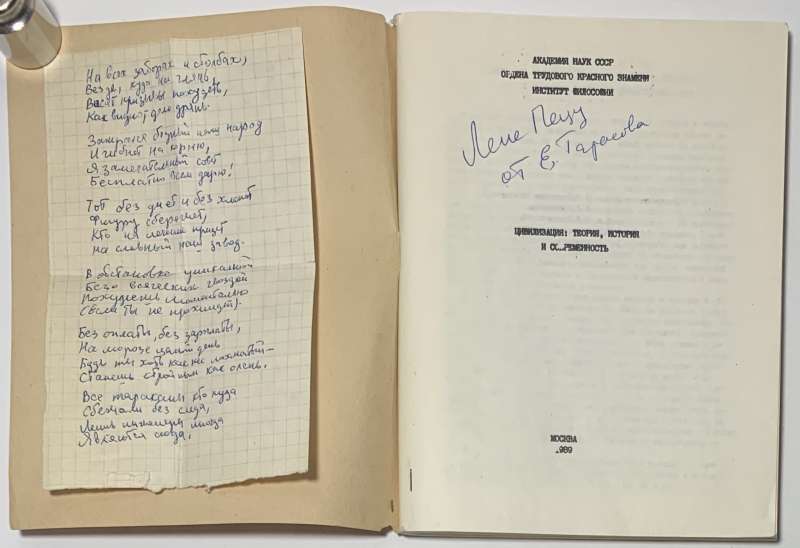 На всех заборах и столбах,
Везде, куда ни глянь,
Висят призывы похудеть,
Как видно, дело дрянь.
Зажрался бедный наш народ
И гибнет на корню,
Я замечательный совет
Бесплатно всем дарю!
Тот без диет и без хлопот
Фигуру сбережет,
Кто на
придёт
на славный наш завод.
В обстановке уникальной
Безо всяческих гвоздей
Похудеешь моментально
Без оплаты, без зарплаты,
На морозе целый день
Будь ты хоть как
Станешь стройным как олень.
Все тараканы кто куда
Сбежали без следа,
Лишь иногда
Являются сюда,
АКАДЕМИЯ НАУК СССР
ОРДЕНА ТРУДОВОГО КРАСНОГО ЗНАМЕНИ
ИНСТИТУТ ФИЛОСОФИИ
Лене
от Е. Тарасова
ЦИВИЛИЗАЦИЯ: ТЕОРИЯ, ИСТОРИЯ
И СО..РЕМЕННОСТЬ
МОСКВА
.989